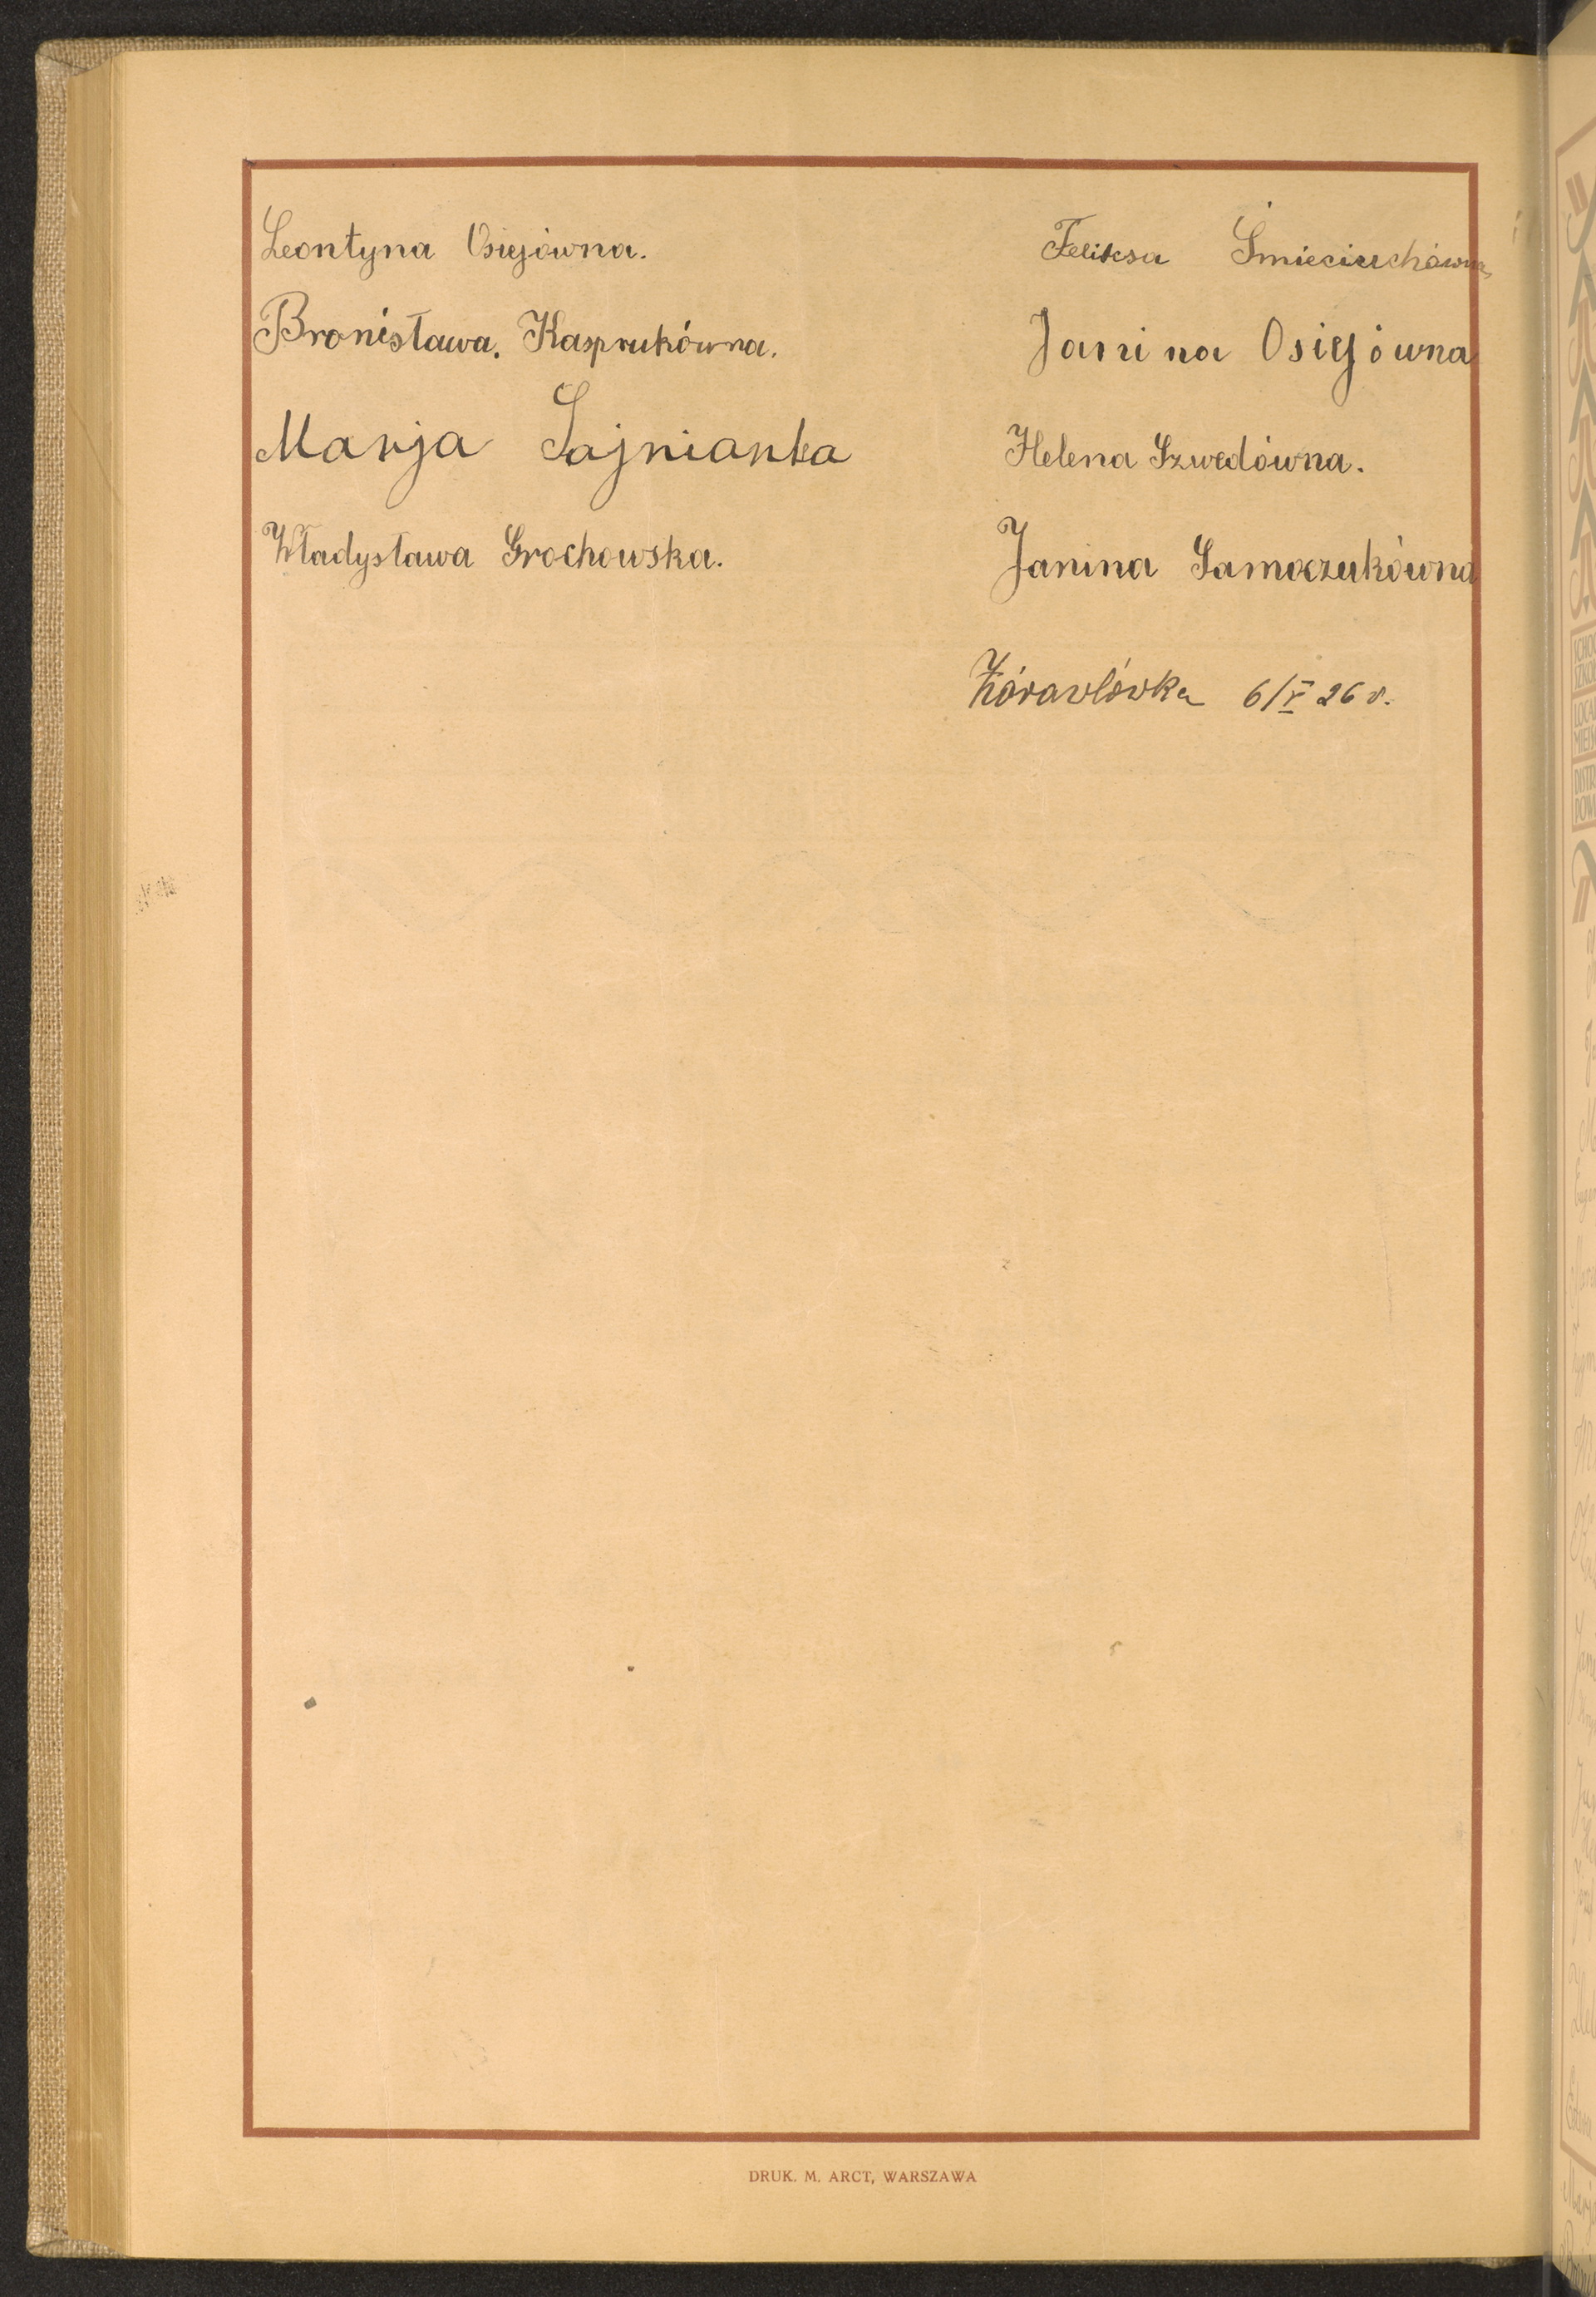 Leontyna Osiejówna.
Bronisława. Kasprukówna.
Marja Sajnianka
Władysława Grochowska.
Feliksa Śmieciuchówna
Janina Osiejówna
Helena Szwedówna.
Janina Samoczukówna
6/V 26 r.
DRUK. M. ARCT, WARSZAWA